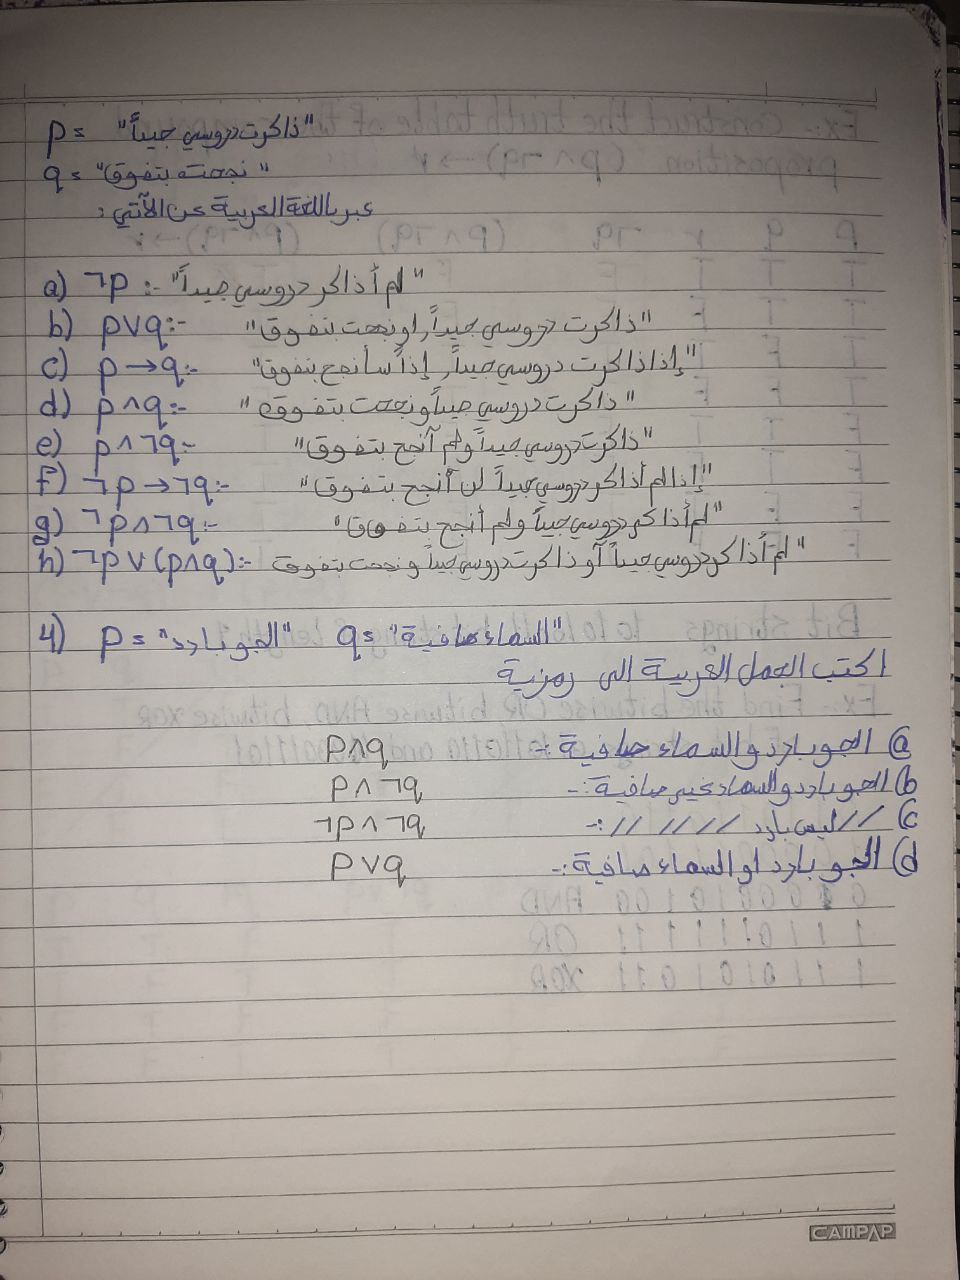 p = "ذاكرت دروسي جيداً"
q = "نجحت بتفوق"
عبر باللغة العربية عن الآتي :
a) ¬p :- "لم أذاكر دروسي جيداً"
b) p∨q :- "ذاكرت دروسي جيداً او نجحت بتفوق"
c) p→q :- "إذا ذاكرت دروسي جيداً, إذاً سأنجح بتفوق"
d) p∧q :- "ذاكرت دروسي جيداً ونجحت بتفوق"
e) p∧¬q :- "ذاكرت دروسي جيداً ولم أنجح بتفوق"
f) ¬p→¬q :- "إذا لم أذاكر دروسي جيداً لن أنجح بتفوق"
g) ¬p∧¬q :- "لم أذاكر دروسي جيداً ولم أنجح بتفوق"
h) ¬p∨(p∧q) :- "لم أذاكر دروسي جيداً أو ذاكرت دروسي جيداً ونجحت بتفوق
4) p = "الجو بارد" q = "السماء صافية"
اكتب الجمل العربية الى رمزية
a) الجو بارد والسماء صافية :- p∧q
b) الجو بارد والسماء غير صافية :- p∧¬q
c) // ليس بارد // // // :- ¬p∧¬q
d) الجو بارد او السماء صافية :- p∨q
CAMPAP